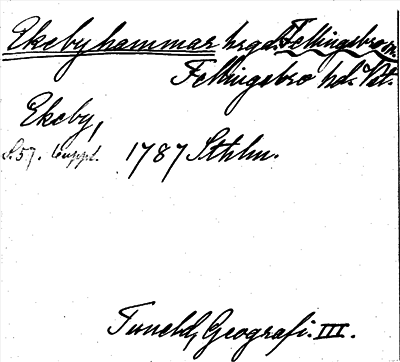 Ekeby hammar hrgd. Fellingsbro sn.
Fellingsbro hd. Vst.
Ekeby,
S. 57. 1787 Sthlm.
Tuneld, Geografi. III.